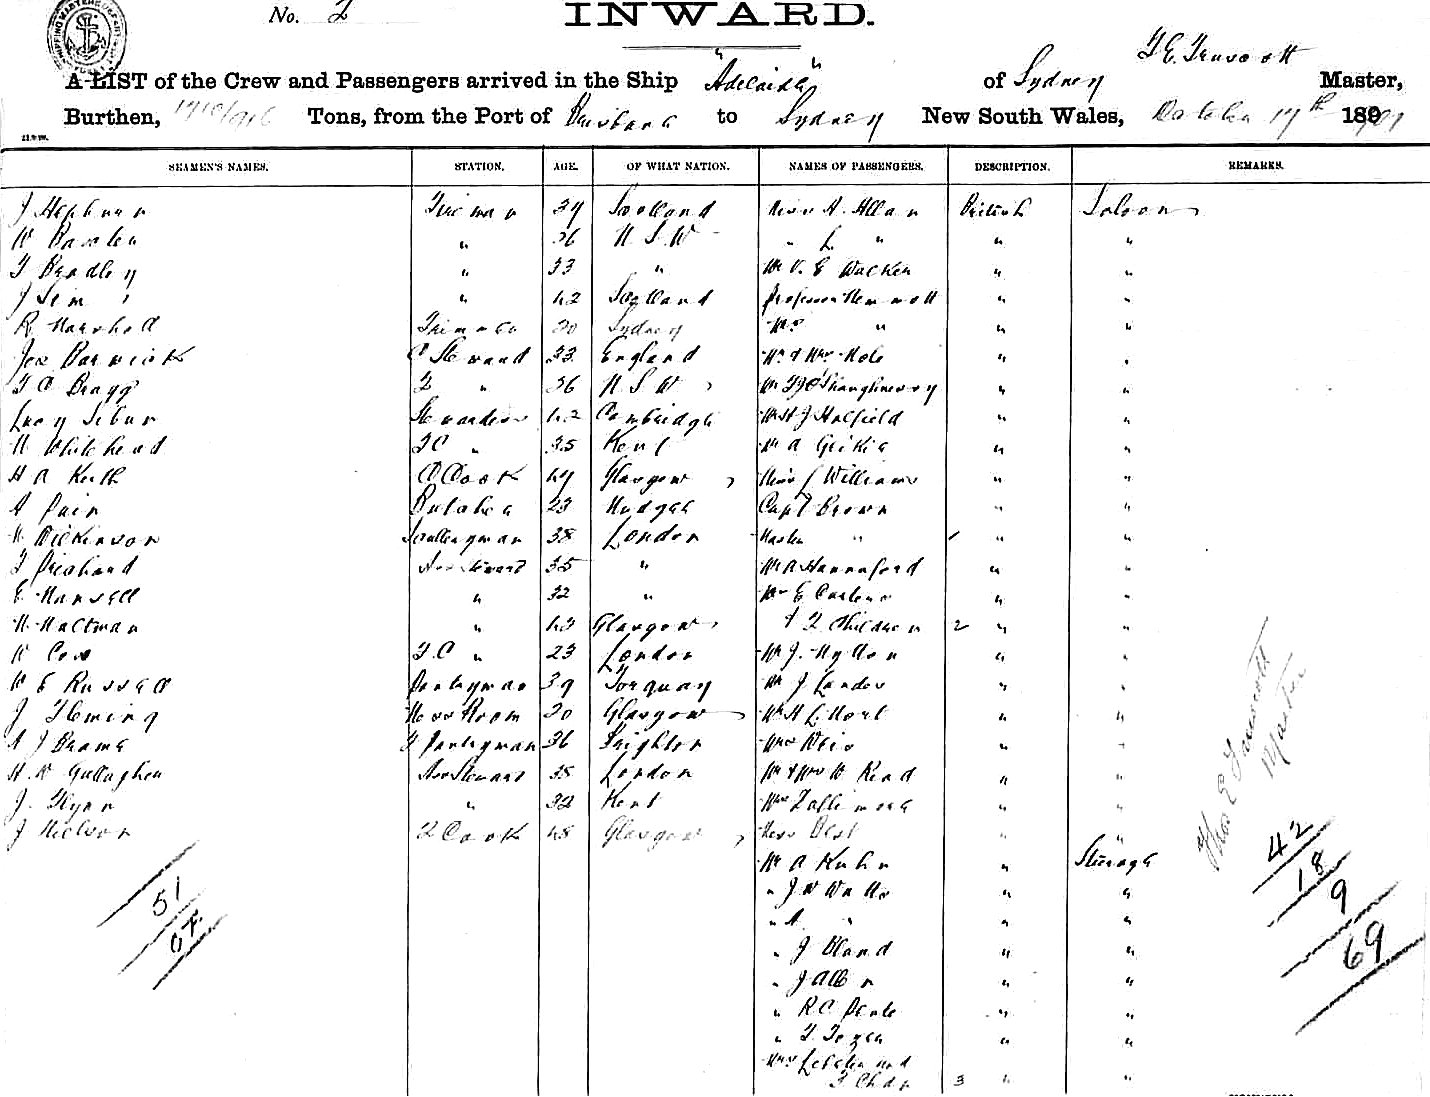 No. 2
INWARD.
A LIST of the Crew and Passengers arrived in the Ship "Adelaide" of Sydney T E Truscott Master,
Burthen, Tons, from the Port of Brisbane to Sydney New South Wales, October 17th 1901
SEAMEN'S NAMES. STATION. AGE. OF WHAT NATION. NAMES OF PASSENGERS. DESCRIPTION. REMARKS.
J Hepburn Fireman 34 Scotland Miss A. Allan British Saloon
W " 36 N S W " L " " "
T Bradley " 33 " Mr V. E Walker " "
J Sim " 42 Scotland Professor " "
R 30 Sydney Mrs " " "
Jas Barwick C Steward 33 England Mr & Mrs Hole " "
T C Bragg 2 " 36 N S W Mr T J O'Shaughnessy " "
Lucy Stewardess 42 Cambridge Mr H J Halfield " "
W Whitehead F C " 35 Kent Mr A Geikie " "
H A Keith C Cook 47 Glasgow Miss J Williams " "
A Pain Butcher 23 Mudgee Capt Brown " "
W Dickinson Sculleryman 38 London Master " 1 " "
T Prichard Ass Steward 35 " Mr A Hannaford " "
E Mansell " 32 " Mrs E " "
W Maltman " 43 Glasgow & 2 Children 2 " "
W Cox F.C " 23 London Mr J. Hylton " "
W E Russell Pantryman 39 Torquay Mr J Landes " "
J Fleming Mess Room 30 Glasgow Mr H L Mort " "
A J Brame F Pantryman 36 Brighton Mrs Weir " "
H. W Gallagher Ass Steward 35 London Mr & Mrs W Read " "
J. Flynn " 32 Kent Mrs " "
J Nielson 2 Cook 48 Glasgow Miss Best " "
Mr A Kuhn " Steerage
" J W Watts " "
" A " " "
" J Bland " "
" J Allen " "
" R C " "
" T. " "
Mrs
2 Chdn 3 " "
51
Thos E Truscott
Master
42
18
9
69